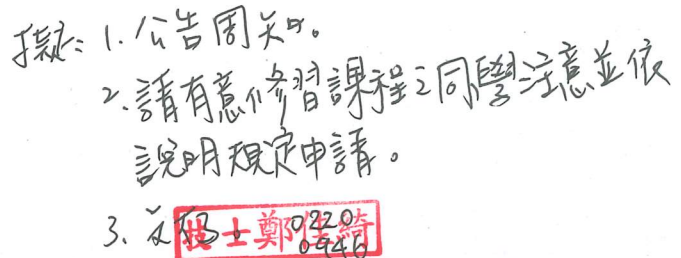 擬: 1. 公告周知。
2. 請有意修習課程之同學注意並依
說明規定申請。
3. 文存。
技士鄭佳綺 0220
0946